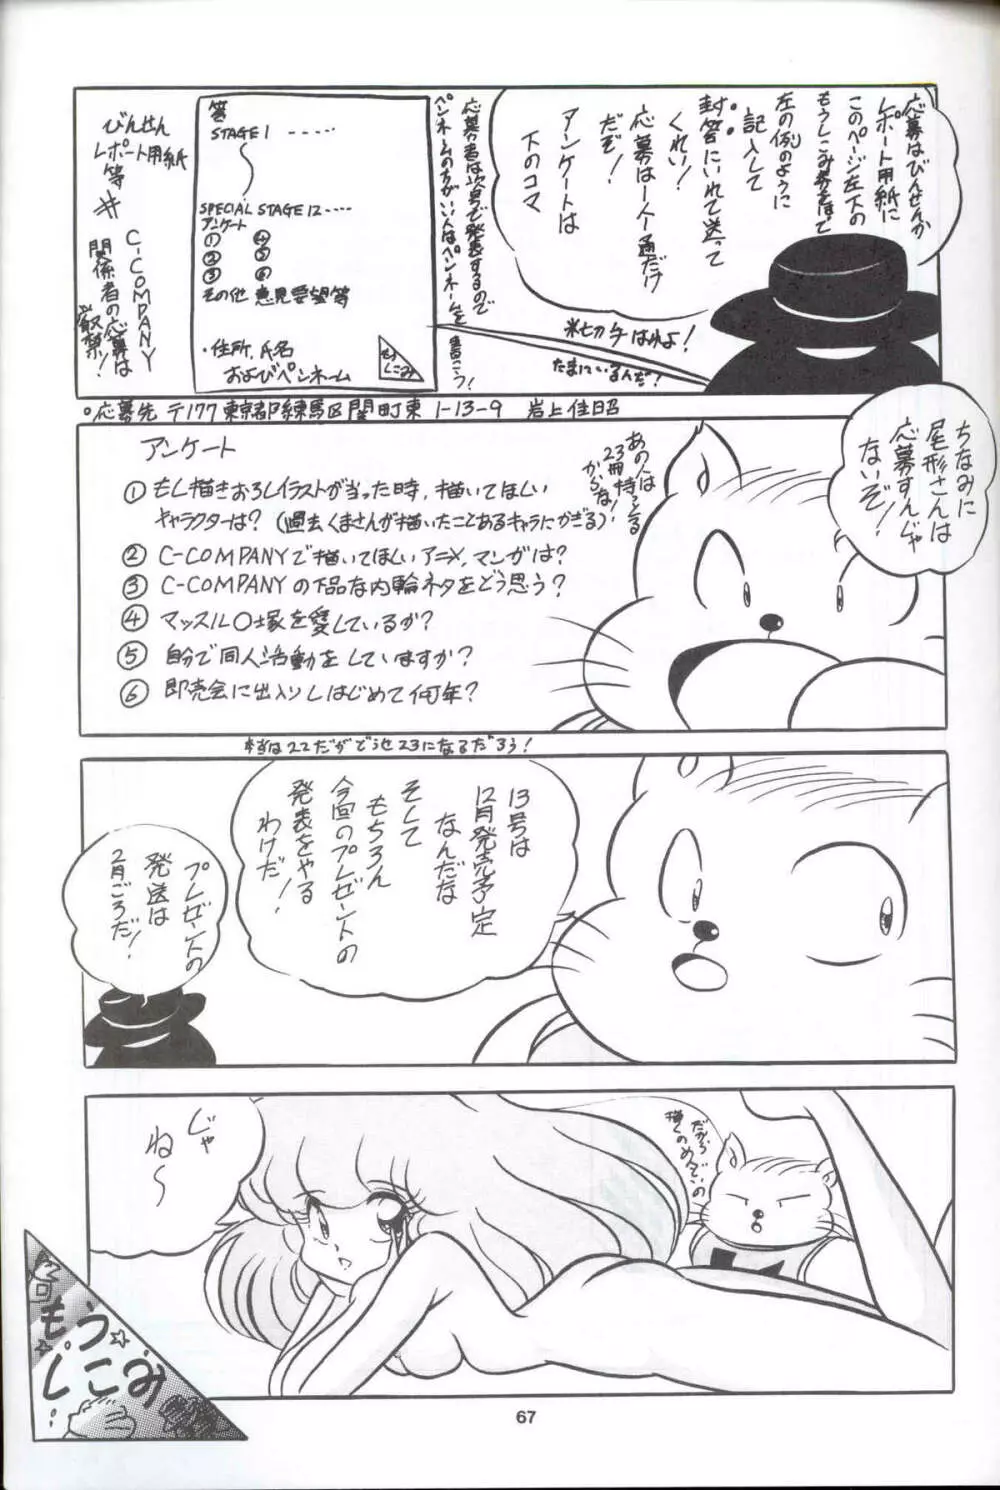 応募はびんせんか
レポート用紙に
このページ左下の
もうしこみ券をはって
左の例のように
記入して
封筒にいれて送って
くれい!
応募は一人一通だけ
だぞ!
アンケートは
下のコマ
※切手はれよ!
たまにいるんだ!
応募者は次号で発表するので
ペンネームの方がいい人はペンネームを
書こう!
答
STAGE 1 ----
SPECIAL STAGE 12----
アンケート
① ④
② ⑤
③ ⑥
その他 意見要望等
・住所、氏名
およびペンネーム
もうしこみ
びんせん
レポート用紙
等
C-COMPANY
関係者の応募は
厳禁!
応募先 〒177 東京都練馬区関町東1-13-9 岩上佳昭
ちなみに
尾形さんは
応募すんじゃ
ないぞ!
あの人は
23冊持っとる
からな!
アンケート
① もし描きおろしイラストが当った時、描いてほしい
キャラクターは?(過去くまさんが描いたことあるキャラにかぎる)
② C-COMPANYで描いてほしいアニメ、マンガは?
③ C-COMPANYの下品な内輪ネタをどう思う?
④ マッスル〇士塚を愛しているか?
⑤ 自分で同人活動をしていますか?
⑥ 即売会に出入りしはじめて何年?
本当は22だがどうせ23になるだろう!
13号は
12月発売予定
なんだな
そして
もちろん
今回のプレゼントの
発表をやる
わけだ!
プレゼントの
発送は
2月ごろだ!
だから
描くのめんでいの
じゃ
ね〜
もうしこみ
67